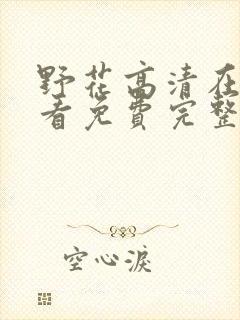 野花高清在
看免费完整
空心淚